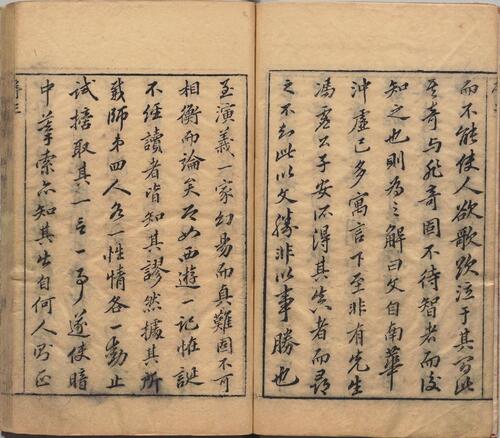 而不能使人欲歌欲泣于其間此
其奇與非奇固不待智者而後
知之也則為之解曰文自南華
沖虛已多寓言下至非有先生
馮虛公子安所得其真者而尋
之不知此以文勝非以事勝也
至演義一家幻易而真難固不可
相衡而論矣即如西遊一記怪誕
不經讀者皆知其謬然據其所
載師弟四人各一性情各一動止
試摘取其一言一事遂使暗
中摹索亦知其出自何人則正
序三